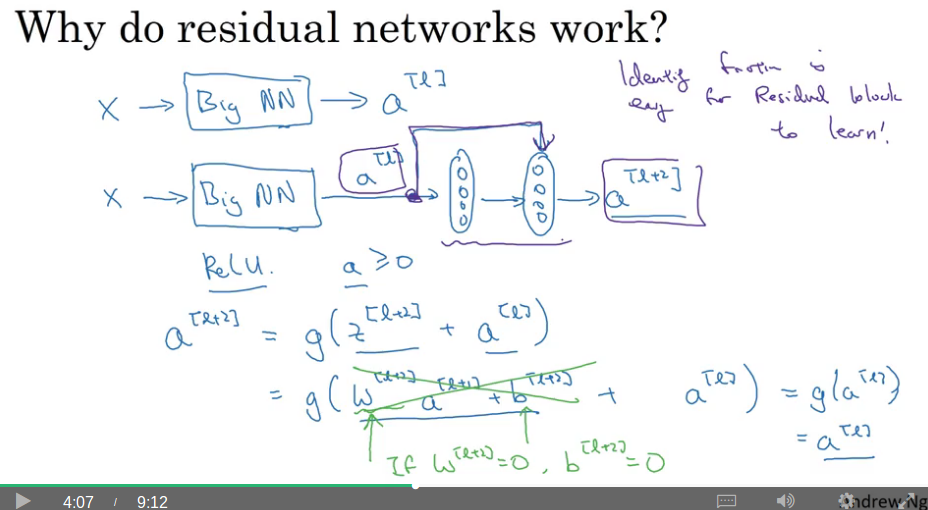 Why do residual networks work?
Identity function is
easy for Residual block
to learn!
X → Big NN → a^[l]
X → Big NN → a^[l] → a^[l+2]
ReLU. a ≥ 0
a^[l+2] = g(z^[l+2] + a^[l])
= g(W^[l+2] a^[l+1] + b^[l+2] + a^[l]) = g(a^[l])
= a^[l]
If W^[l+2] = 0, b^[l+2] = 0
4:07 / 9:12
Andrew Ng